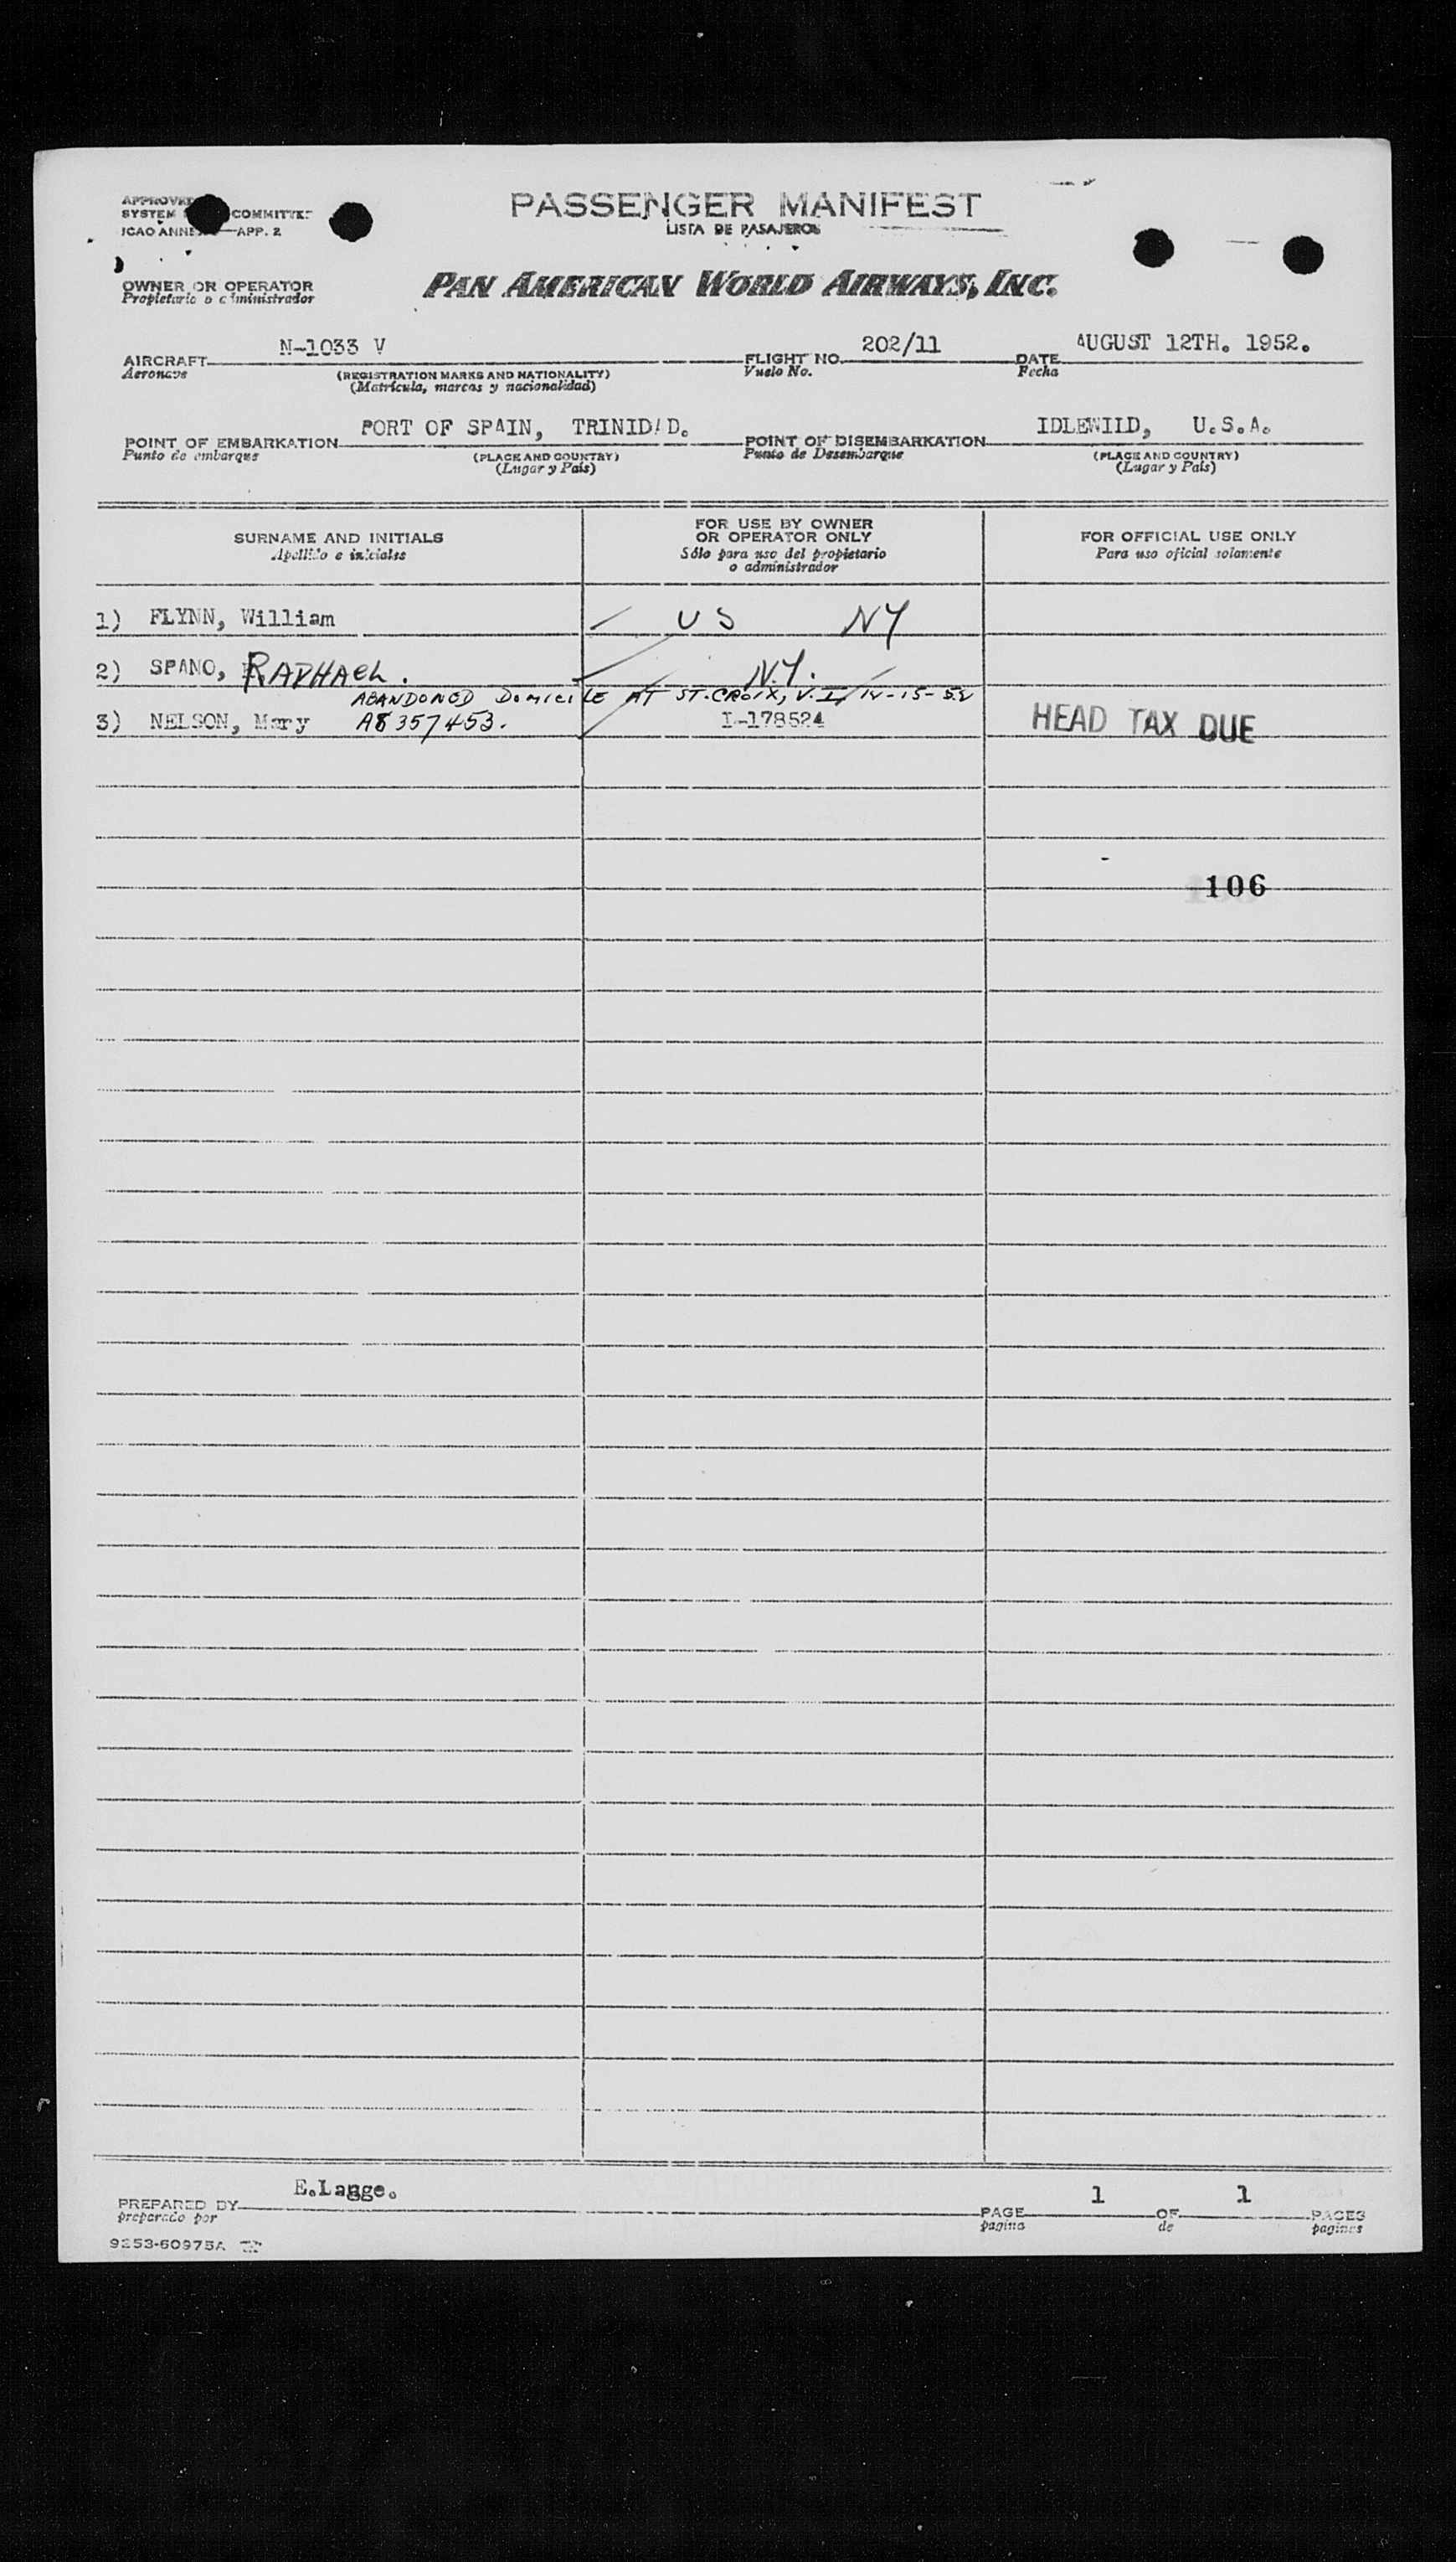 PASSENGER MANIFEST
LISTA DE PASAJEROS
APPROVED
SYSTEM COMMITTEE
ICAO ANNEX APP. 2
OWNER OR OPERATOR
Propietario o administrador
PAN AMERICAN WORLD AIRWAYS, INC.
AIRCRAFT N-1033 V FLIGHT NO. 202/11 DATE AUGUST 12TH. 1952.
Aeronave (REGISTRATION MARKS AND NATIONALITY) Vuelo No. Fecha
(Matrícula, marcas y nacionalidad)
POINT OF EMBARKATION PORT OF SPAIN, TRINIDAD. POINT OF DISEMBARKATION IDLEWILD, U.S.A.
Punto de embarque (PLACE AND COUNTRY) Punto de Desembarque (PLACE AND COUNTRY)
(Lugar y País) (Lugar y País)
SURNAME AND INITIALS FOR USE BY OWNER OR OPERATOR ONLY FOR OFFICIAL USE ONLY
Apellido e iniciales Sólo para uso del propietario o administrador Para uso oficial solamente
1) FLYNN, William US NY
2) SPANO, RAPHAEL. N.Y.
ABANDONED DOMICILE AT ST. CROIX, V.I.
3) NELSON, Mary A8357453. I-178524 HEAD TAX DUE
106
PREPARED BY E.Lange. PAGE 1 OF 1 PAGES
preparado por pagina de paginas
9253-60975A